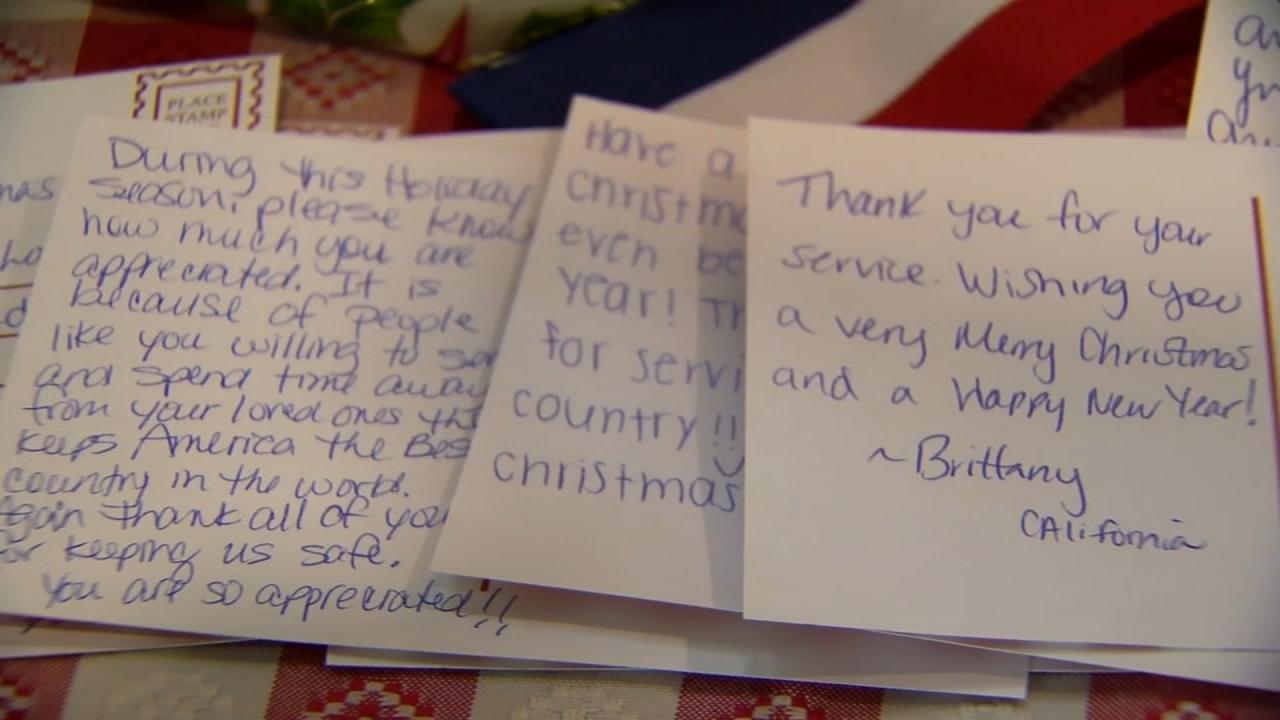 PLACE
STAMP
During this Holiday
Season, please know
how much you are
appreciated. It is
because of people
like you willing to
and spend time away
from your loved ones
keeps America the Bes
country in the world.
thank all of you
keeping us safe.
You are so appreciated!!
Have a
Christma
even be
year!
for servi
country!!
christmas
Thank you for your
service. Wishing you
a very Merry Christmas
and a Happy New Year!
~Brittany
CAlifornia